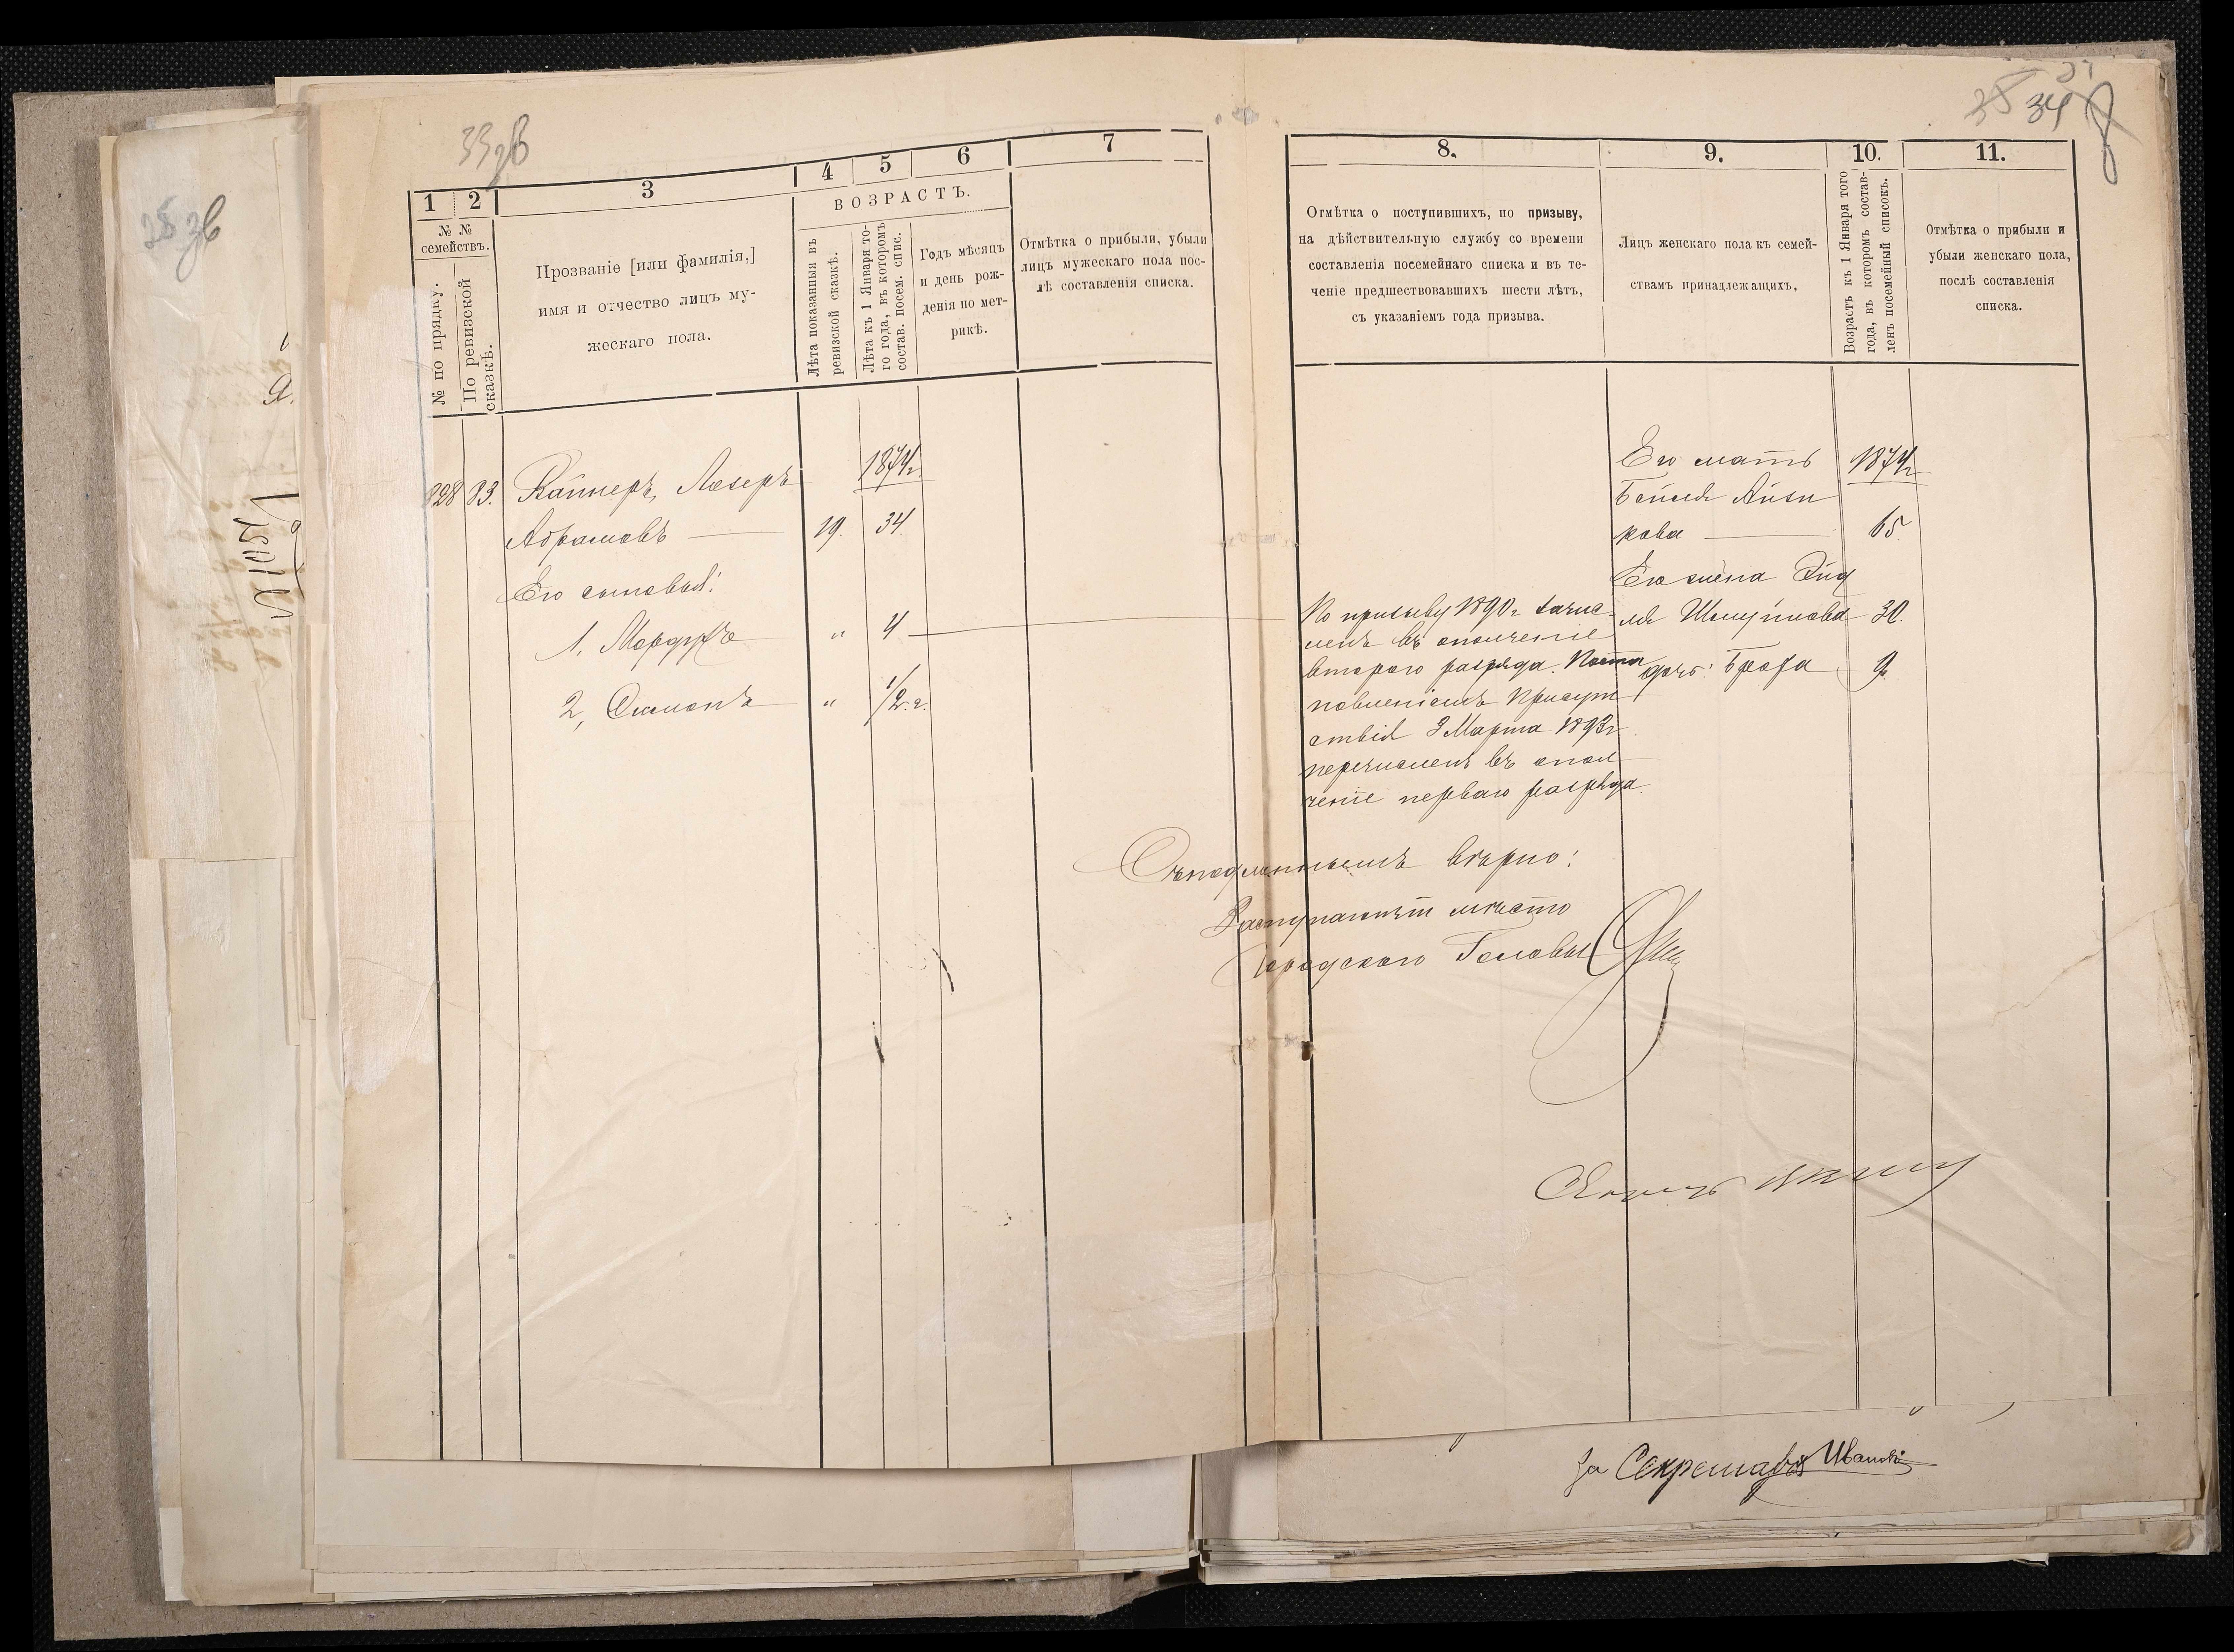 33 зв
35 34
25 зв
№ 1051
1 2 3 4 5 6 7
№ №
семействъ.
№ по прядку.
По ревизской
сказкѣ.
Прозваніе [или фамилія,]
имя и отчество лицъ му-
жескаго пола.
ВОЗРАСТЪ.
Лѣта показанныя въ
ревизской сказкѣ.
Лѣта къ 1 Января то-
го года, въ которомъ
состав. посем. спис.
Годъ мѣсяцъ
и день рож-
денія по мет-
рикѣ.
Отмѣтка о прибыли, убыли
лицъ мужескаго пола пос-
лѣ составленія списка.
328 33. Вайнеръ, Лозеръ 1874 г.
Абрамовъ 19. 34.
Его сыновья:
1, Мордухъ " 4
2, Симонъ " 1/2 г.
8. 9. 10. 11.
Отмѣтка о поступившихъ, по призыву,
на дѣйствительную службу со времени
составленія посемейнаго списка и въ те-
ченіе предшествовавшихъ шести лѣтъ,
съ указаніемъ года призыва.
Лицъ женскаго пола къ семей-
ствамъ принадлежащихъ,
Возрастъ къ 1 Января того
года, въ которомъ состав-
ленъ посемейный списокъ.
Отмѣтка о прибыли и
убыли женскаго пола,
послѣ составленія
списка.
По призыву 1890 г. зачис-
ленъ въ ополченіе
втораго разряда. Поста
новленіемъ Присут
ствія 3 Марта 1893 г.
перечисленъ въ опол
ченіе перваго разряда.
Его мать 1874 г.
Бейля Айзи
кова 65.
Его жена Эйд
ля Шмуйлова 30.
дочь: Броха 9.
Съ подлиннымъ вѣрно:
Заступающій мѣсто
Городского Головы
За Секретаря